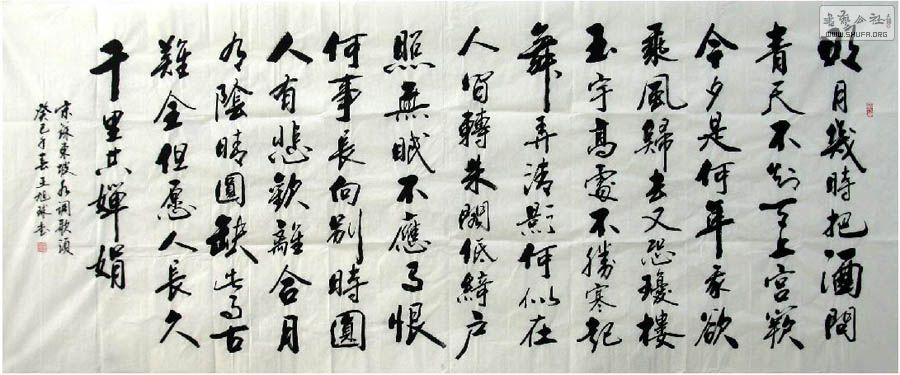 明月幾時把酒問
青天不知天上宮闕
今夕是何年我欲
乘風歸去又恐瓊樓
玉宇高處不勝寒起
舞弄清影何似在
人間轉朱閣低綺戶
照無眠不應有恨
何事長向別時圓
人有悲歡離合月
有陰晴圓缺此事古
難全但愿人長久
千里共嬋娟
宋蘇東坡水調歌頭
癸巳年春王旭書
WWW.SHUFA.ORG